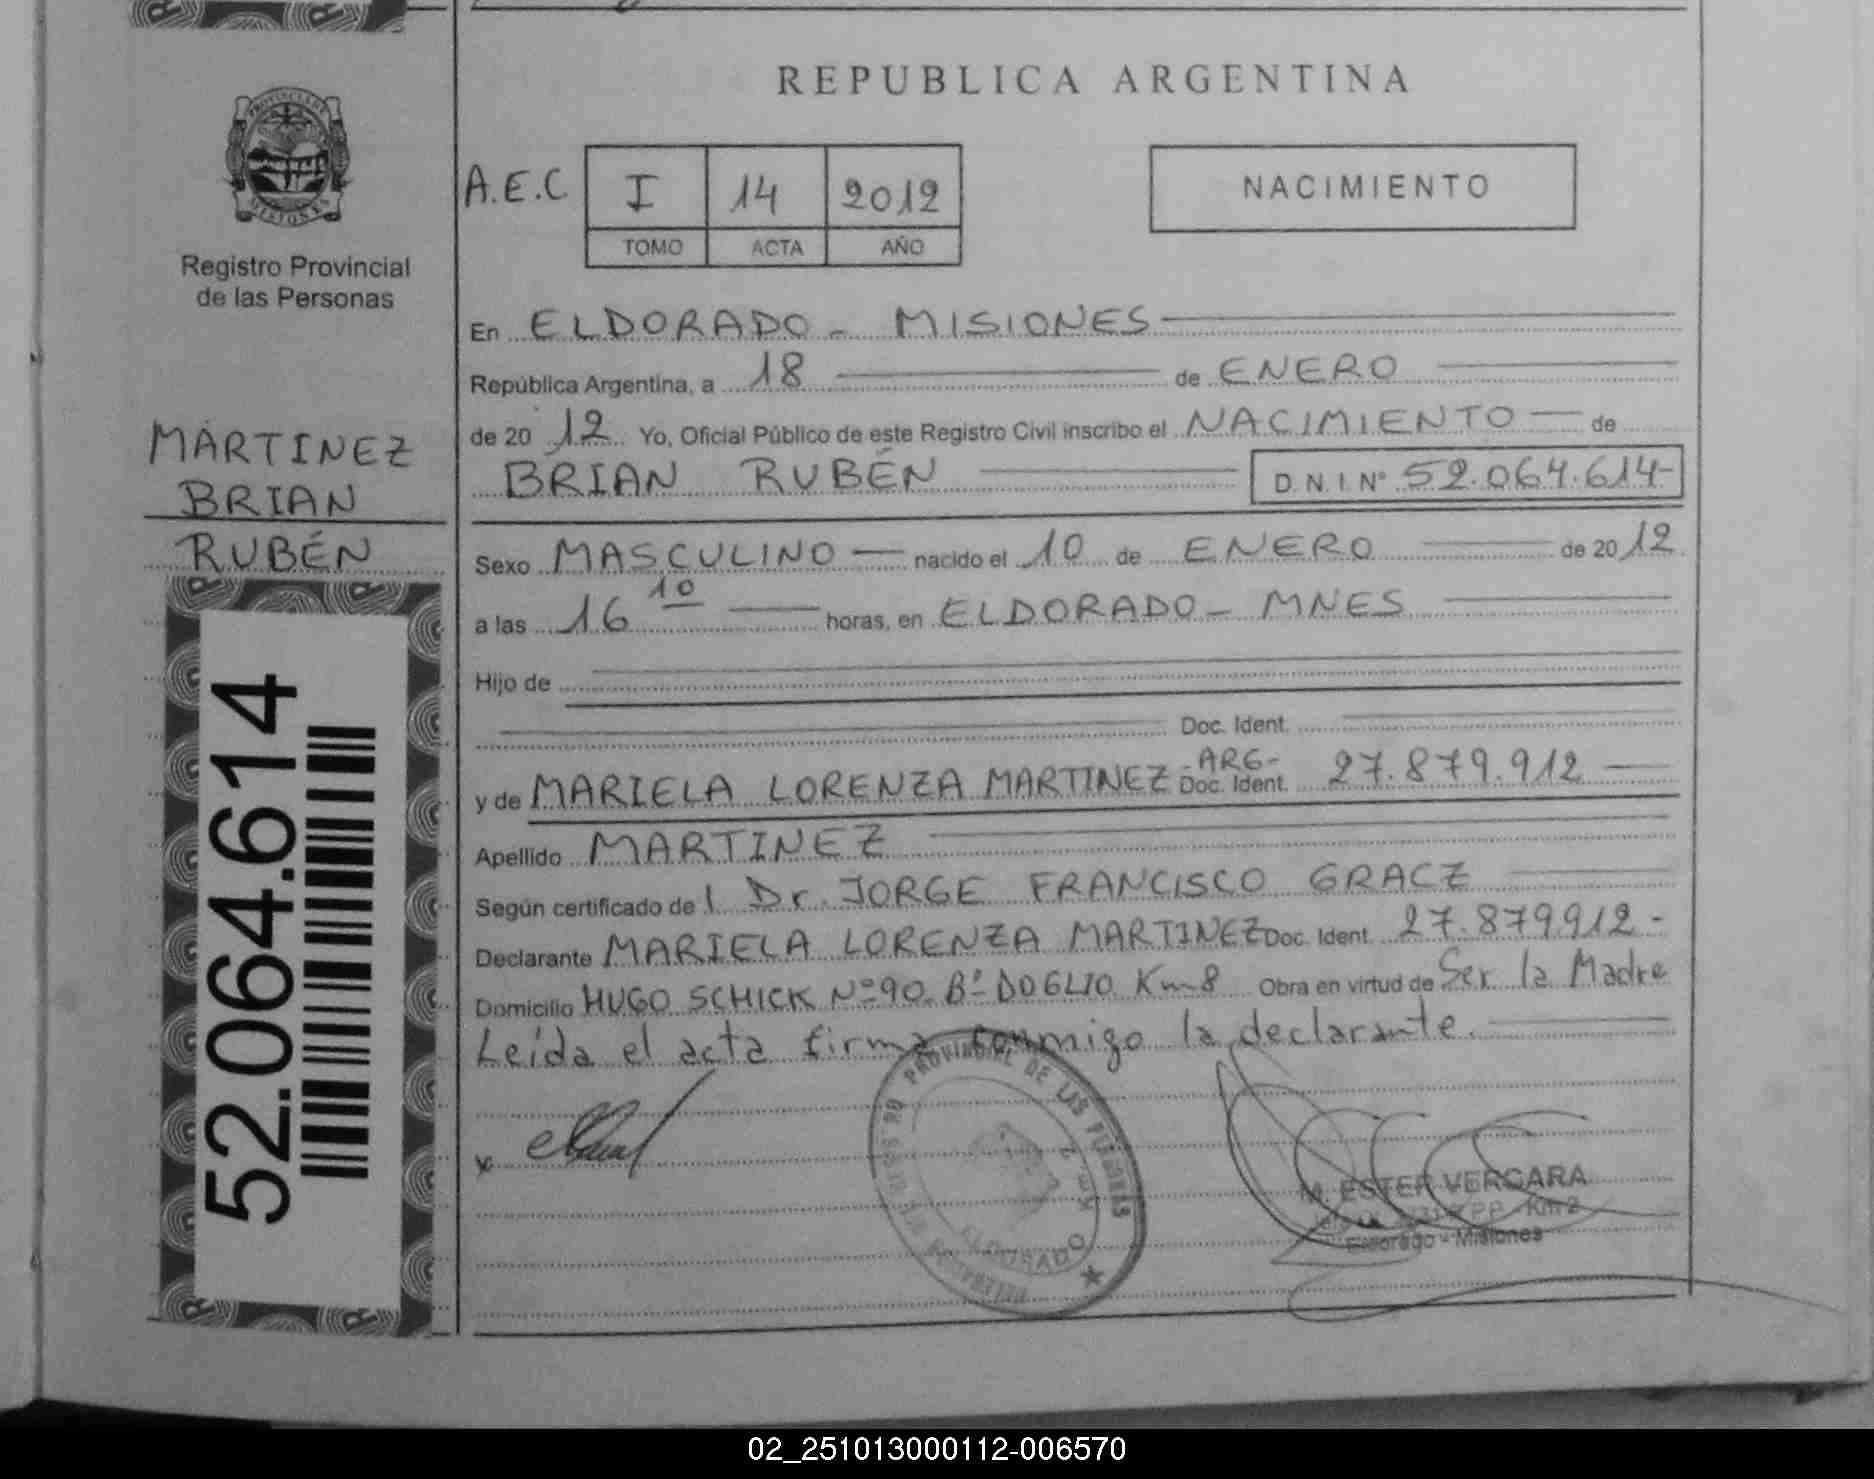 REPUBLICA ARGENTINA
PROVINCIA DE
MISIONES
Registro Provincial
de las Personas
A.E.C
I 14 2012
TOMO ACTA AÑO
NACIMIENTO
En ELDORADO - MISIONES
República Argentina, a 18 de ENERO
de 20 12 Yo, Oficial Público de este Registro Civil inscribo el NACIMIENTO de
BRIAN RUBÉN D.N.I. Nº 52.064.614-
MARTINEZ
BRIAN
RUBÉN
Sexo MASCULINO nacido el 10 de ENERO de 20 12
a las 16 10 horas, en ELDORADO - MNES
Hijo de
Doc. Ident.
y de MARIELA LORENZA MARTINEZ -ARG- Doc. Ident. 27.879.912
Apellido MARTINEZ
Según certificado de l Dr. JORGE FRANCISCO GRACZ
Declarante MARIELA LORENZA MARTINEZ Doc. Ident. 27.879912-
Domicilio HUGO SCHICK Nº90 Bº DOGLIO Km 8 Obra en virtud de Ser la Madre
Leída el acta firma conmigo la declarante.
52.064.614
PROVINCIAL DE LAS PERSONAS
Km. 2
ELDORADO
M. ESTER VERGARA
Km 2
Eldorado - Misiones
02_251013000112-006570